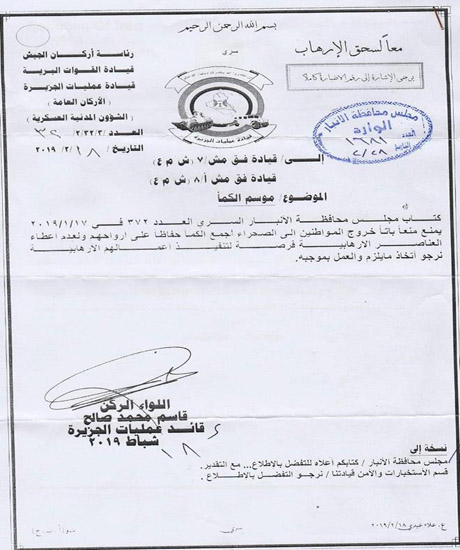 بسم الله الرحمن الرحيم
سري
معاً لسحق الإرهاب
يرجى الإشارة إلى رقم الاضبارة كاملا
رئاسة أركان الجيش
قيادة القوات البرية
قيادة عمليات الجزيرة
(الأركان العامة)
(الشؤون المدنية العسكرية)
العدد ٣٢/٢/٢٢٢
التاريخ ١٨/٢/٢٠١٩
قيادة عمليات الجزيرة
مجلس محافظة الأنبار
الوارد
العدد ١٦٨١
التاريخ ٢/٢٨
إلى/ قيادة فق مش/٧ (ش م ع)
قيادة فق مش أ/٨ (ش م ع)
الموضوع/ موسم الكمأ
كتاب مجلس محافظة الأنبار السري العدد ٣٧٢ في ٢٠١٩/١/١٧
يمنع منعاً باتاً خروج المواطنين الى الصحراء لجمع الكمأ حفاظا على ارواحهم ولعدم اعطاء
العناصر الارهابية فرصة لتنفيذ اعمالهم الارهابية
نرجو أتخاذ مايلزم والعمل بموجبه.
اللواء الركن
قاسم محمد صالح
قائد عمليات الجزيرة
١٨ شباط ٢٠١٩
نسخة إلى
مجلس محافظة الأنبار / كتابكم أعلاه للتفضل بالاطلاع... مع التقدير.
قسم الاستخبارات والأمن قيادتنا / نرجو التفضل بالاطلاع .
ع. علاء عبدي ٢٠١٩/٢/١٨
سري